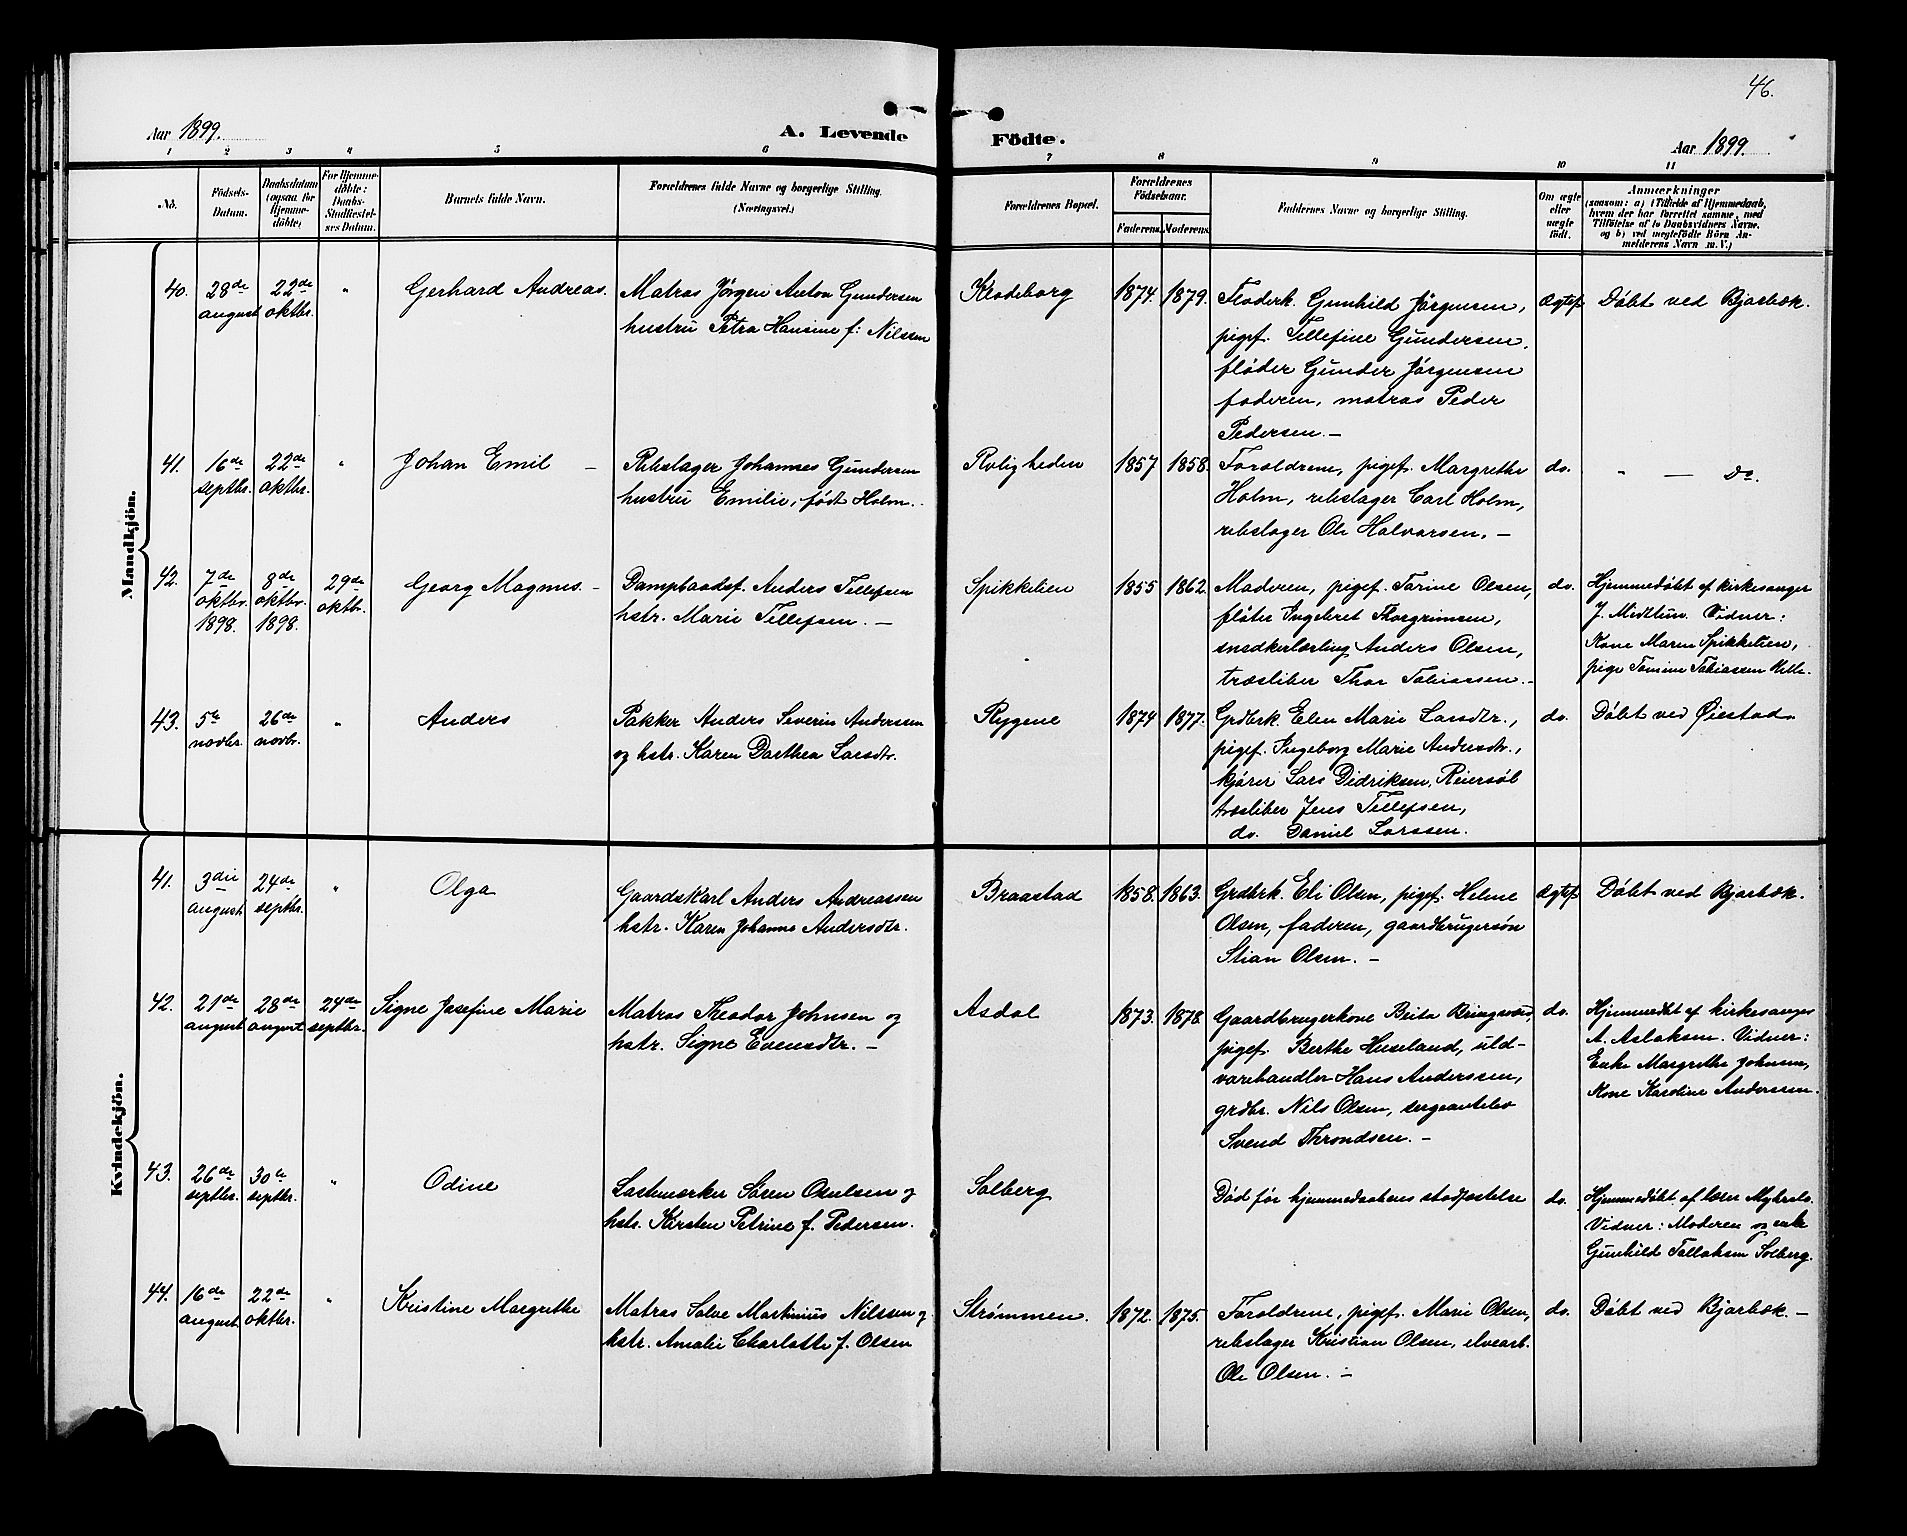 46.
Aar 1899.
A. Levende Födte.
Aar 1899.
1 2 3 4 5 6 7 8 9 10 11
No.
Födsels-
Datum.
Daabsdatum
(ogsaa for
Hjemme-
döbte)
For Hjemme-
döbte:
Daabs-
Stadfæstel-
ses Datum.
Barnets fulde Navn.
Forældrenes fulde Navne og borgerlige Stilling.
(Næringsvei.)
Forældrenes Bopæl.
Forældrenes
Födselsaar.
Faderens. Moderens.
Faddernes Navne og borgerlige Stilling.
Om ægte
eller
uægte
födt.
Anmærkninger
(saasom: a) i Tilfælde af Hjemmedaab,
hvem der har forrettet samme, med
Tilföielse af to Daabsvidners Navne,
og b) ved uægtefödte Börn An-
melderens Navn m. V.)
Mandkjön.
40.
28de
august
22de
oktbr.
"
Gerhard Andreas.
Matros Jørgen Anton Gundersen
hustru Petra Hansine f: Nilssen
Klodeborg
1874. 1879.
Fløderk. Gunhild Jørgensen,
pigef. Tellefine Gundersen,
fløder Gunder Jørgensen
faderen, matros Peder
Pedersen. —
Ægtef
Døbt ved Bjorbæk.
41.
16de
septbr.
22de
oktbr.
"
Johan Emil —
Rebslager Johannes Gundersen
hustru Emilie, født Holm.
Roligheden
1857 1858.
Forældrene, pigef. Margrethe
Holm, rebslager Carl Holm,
rebslager Ole Halvorsen. —
do.
" — Do.
42.
7de
oktbr.
1898.
8de
oktbr.
1898.
29de
oktbr.
Georg Magnus. —
Dampbaadsf. Anders Tellefsen
hstr. Marie Tellefsen. —
Spikkelien
1855 1862.
Moderen, pigef. Tarine Olsen,
fløter Ingebret Thorgrimsen,
snedkerlærling Anders Olsen,
træsliber Thor Tobiassen. —
do.
Hjemmedøbt af kirkesanger
J. Midtlun. Vidner:
Kone Maren Spikkelien,
pige Tomine Tobiassen
43.
5te
novbr.
26de
novbr.
"
Anders
Pakker Anders Severin Andersen
og hstr. Karen Dorthea Larsdtr.
Rygene
1874 1877.
Grdbrk. Elen Marie Larsdtr.,
pigef. Ingeborg Marie Andersdtr.,
kjører Lars Didriksen, Reiersøl
træsliber Jens Tellefsen,
do. Daniel Larssen.
do.
Døbt ved Øiestad.
Kvindekjön.
41.
3die
august
24de
septbr.
"
Olga
Gaardskarl Anders Andreassen
hstr. Karen Johanne Andersdtr.
Braastad
1858. 1863.
Grdbrk. Eli Olsen, pigef. Helene
Olsen, faderen, gaardbrugersøn
Stian Olsen. —
Ægtef
Døbt ved Bjorbæk.
42.
21de
august
28de
august
24de
septbr.
Signe Josefine Marie
Matros Theodor Johnsen og
hstr. Signe Evensdtr. —
Asdal
1873. 1878.
Gaardbrugerkone Beita Bringsværd,
pigef. Berthe Huseland, uld-
varehandler Hans Anderssen,
grdbr. Nils Olsen, sergeantelev
Svend Throndsen. —
do.
Hjemmedøbt af kirkesanger
A. Aslaksen. Vidner:
Enke Margrethe Johnsen,
Kone Karoline Anderssen.
43.
26de
septbr.
30te
septbr.
"
Odine
Søren Osulsen og
hstr. Kirsten Petrine f. Pedersen.
Solberg
Død før hjemmedaabens stadfæstelse
do.
Hjemmedøbt af lærer
Vidner: Moderen og enke
Gunhild Tallaksen Solberg.
44.
16de
august
22de
oktbr.
"
Kristine Margrethe
Matros Salve Martinius Nilssen og
hstr. Amalie Charlotte f. Olsen
Strømmen.
1872. 1875.
Forældrene, pigef. Marie Olsen,
rebslager Kristian Olsen, elvearb.
Ole Olsen. —
do.
Døbt ved Bjorbæk. —